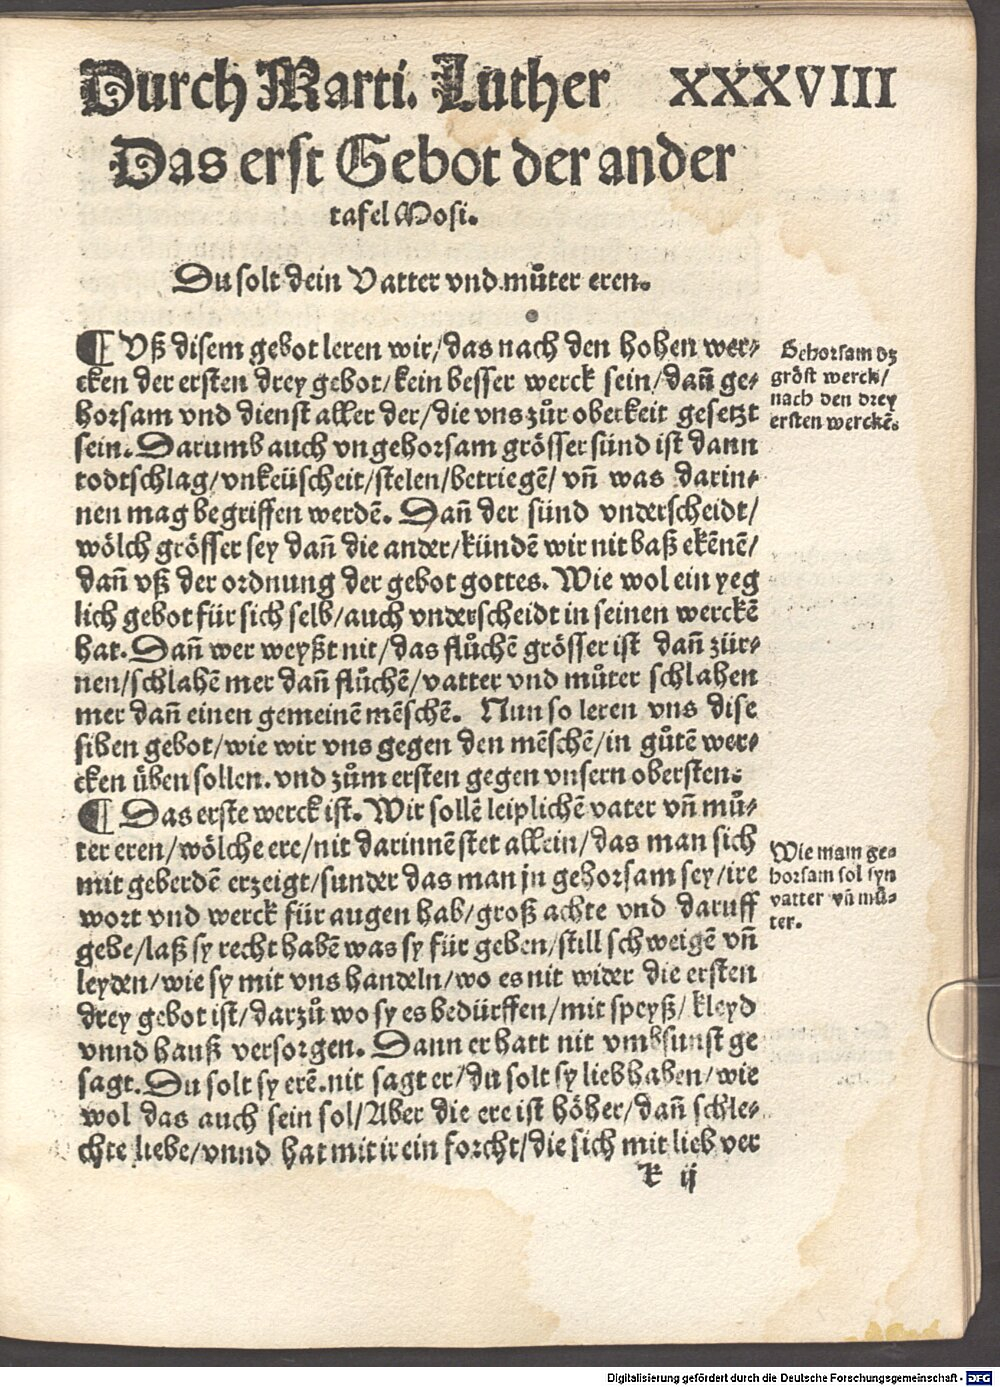 Durch Marti. Luther XXXVIII
Das erst Gebot der ander
tafel Mosi.
Du solt dein Vatter vnd můter eren.
¶ Vß disem gebot leren wir/das nach den hohen wer⸗
cken der ersten drey gebot/kein besser werck sein/dañ ge⸗
horsam vnd dienst aller der/die vns zůr oberkeit gesetzt
sein. Darumb auch vngehorsam grösser sünd ist dann
todtschlag/vnkeüscheit/stelen/betriegẽ/vñ was darin⸗
nen mag begriffen werdẽ. Dañ der sünd vnderscheidt/
wölch grösser sey dañ die ander/kündẽ wir nit baß ekẽnẽ/
dañ vß der ordnung der gebot gottes. Wie wol ein yeg
lich gebot für sich selb/auch vnderscheidt in seinen werckẽ
hat. Dañ wer weyßt nit/das flůchẽ grösser ist dañ zür⸗
nen/schlahẽ mer dañ flůchẽ/vatter vnd můter schlahen
mer dañ einen gemeinẽ mẽschẽ. Nun so leren vns dise
siben gebot/wie wir vns gegen den mẽschẽ/in gůtẽ wer⸗
cken üben sollen. vnd zům ersten gegen vnsern obersten.
¶ Das erste werck ist. Wir sollẽ leiplichẽ vater vñ mů⸗
ter eren/wölche ere/nit darinnẽ stet allein/das man sich
mit geberdẽ erzeigt/sunder das man jn gehorsam sey/ire
wort vnd werck für augen hab/groß achte vnd daruff
gebe/laß sy recht habẽ was sy für geben/still schweigẽ vñ
leyden/wie sy mit vns handeln/wo es nit wider die ersten
drey gebot ist/darzů wo sy es bedürffen/mit speyß/kleyd
vnnd hauß versorgen. Dann er hatt nit vmbsunst ge
sagt. Du solt sy erẽ. nit sagt er/du solt sy lieb haben/wie
wol das auch sein sol/Aber die ere ist höher/dañ schle⸗
chte liebe/vnnd hat mit ir ein forcht/die sich mit lieb ver
k ij
Gehorsam dz
gröst werck/
nach den drey
ersten werckẽ.
Wie mam ge⸗
horsam sol syn
vatter vñ mů⸗
ter.
Digitalisierung gefördert durch die Deutsche Forschungsgemeinschaft - DFG